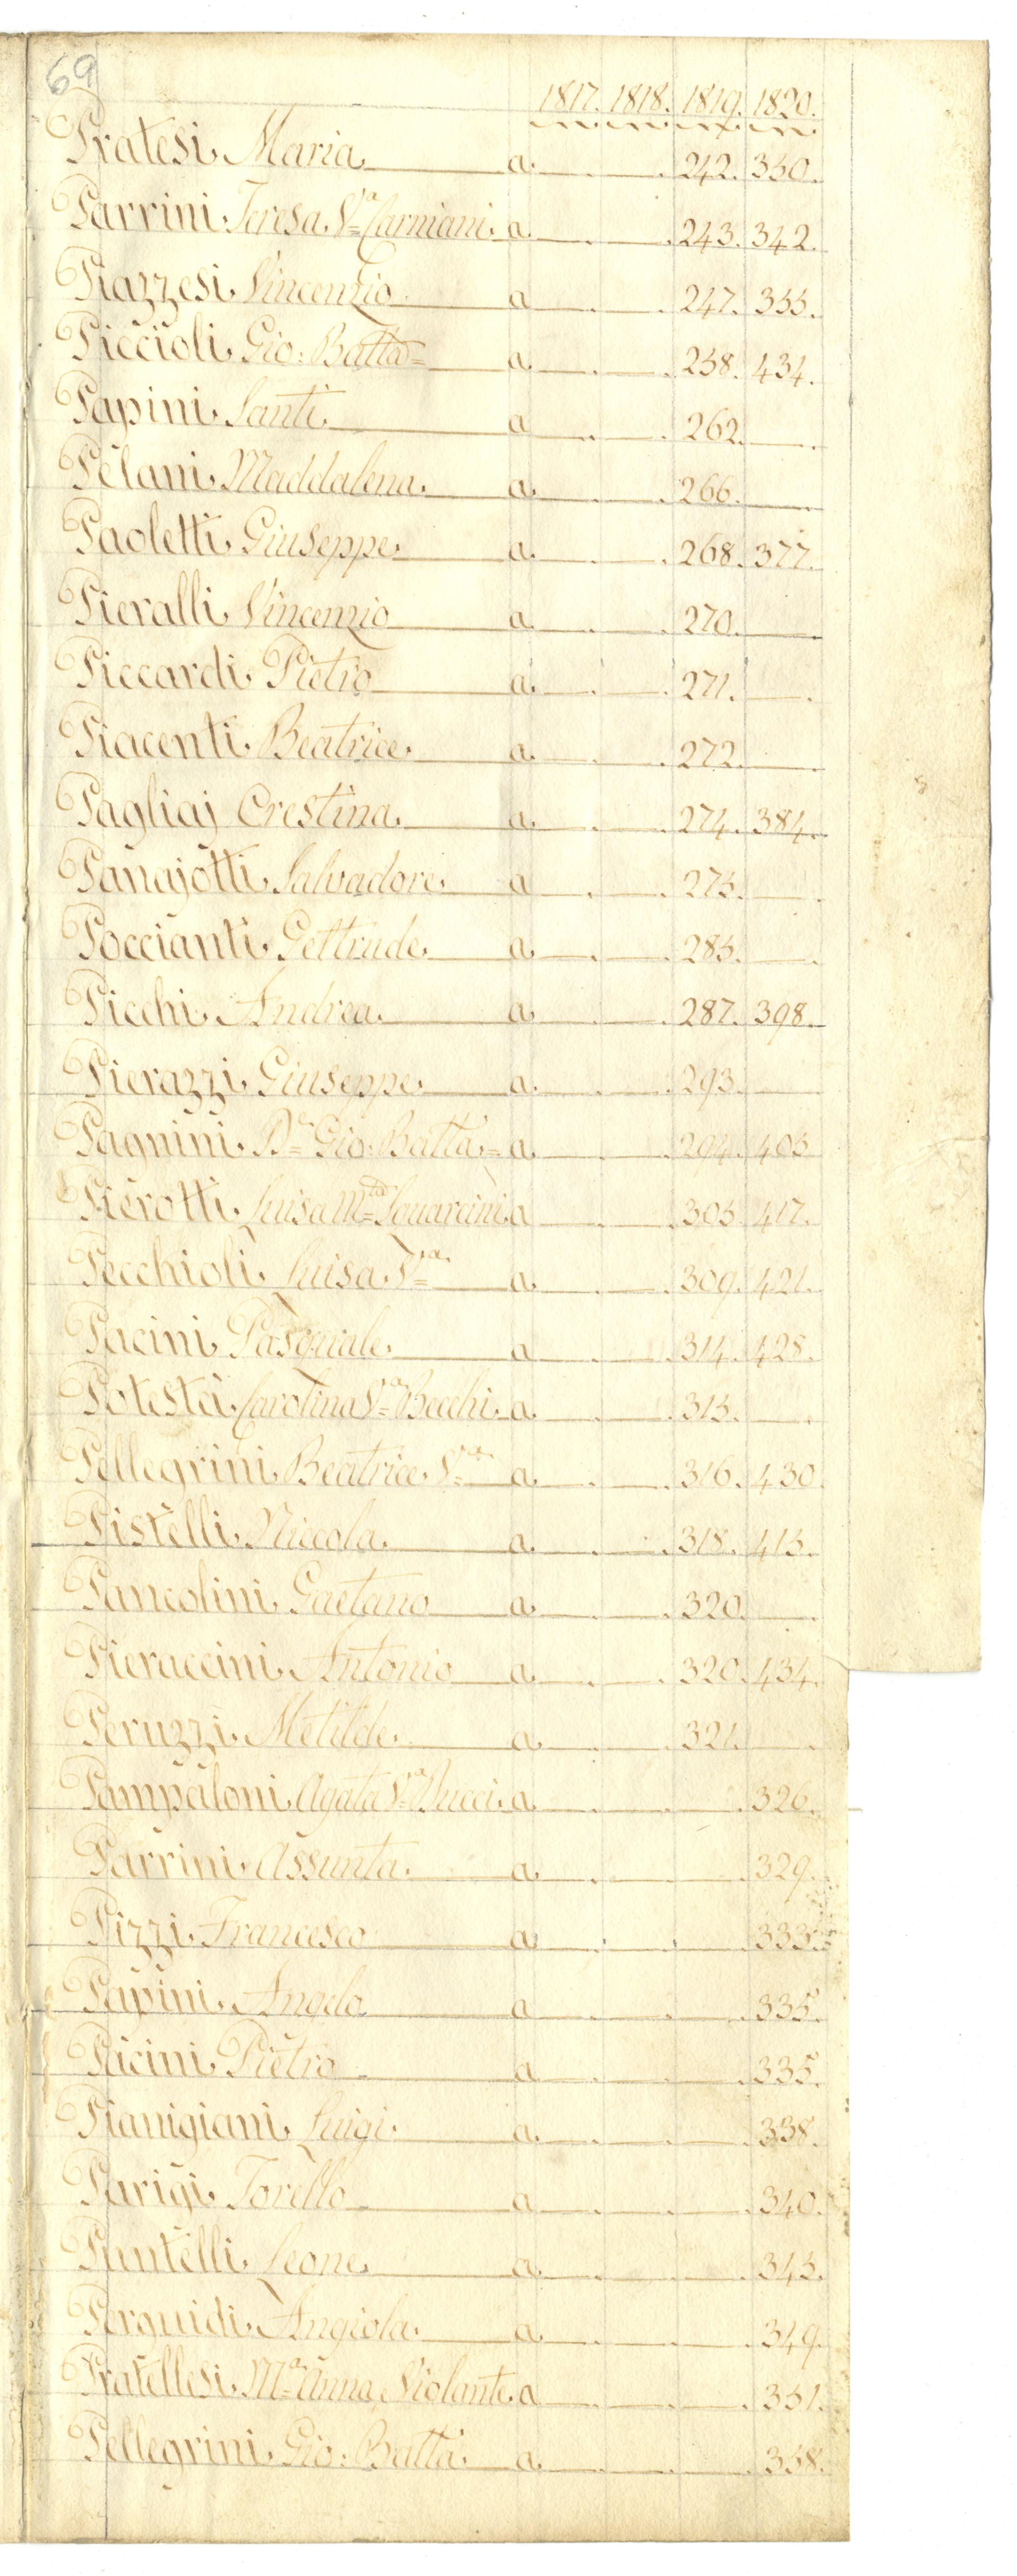 69
1817. 1818. 1819. 1820.
Pratesi Maria a 242. 350.
Parrini Teresa Vª Carniani a 243. 342.
Piazzesi Vincenzio a 247. 355.
Piccioli Gio: Batta a 258. 434.
Papini Santi a 262.
Pelani Maddalena a 266.
Paoletti Giuseppe a 268. 377.
Pieralli Vincenzio a 270.
Piccardi Pietro a 271.
Piacenti Beatrice a 272.
Pagliaj Crestina a 274. 384.
Panajotti Salvadore a 275.
Poccianti Geltrude a 285.
Picchi Andrea a 287. 398.
Pierazzi Giuseppe a 293.
Pagnini Dr Gio: Batta a 294. 405
Pierotti Luisa a 305. 417.
Pecchioli Luisa Vª a 309. 421.
Pacini Pasquale a 314. 428.
Potestà Carolina Vª Becchi a 315.
Pellegrini Beatrice Vª a 316. 430.
Pistelli Niccola a 318. 415.
Pancolini Gaetano a 320.
Pieraccini Antonio a 320. 434.
Peruzzi Metilde a 321.
Pampaloni Agata Vª Nucci a 326.
Parrini Assunta a 329.
Pizzi Francesco a 333.
Papini Angelo a 335.
Picini Pietro a 335.
Pianigiani Luigi a 338.
Parigi Torello a 340.
Puntelli Leone a 345.
Perguidi Angiola a 349.
Pratellesi Mª Anna Violante a 351.
Pellegrini Gio: Batta a 358.